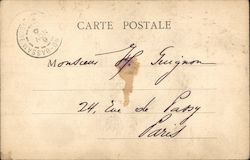 CARTE POSTALE
BASSAM
Monsieur H. Guignon
24, Rue de Passy
Paris